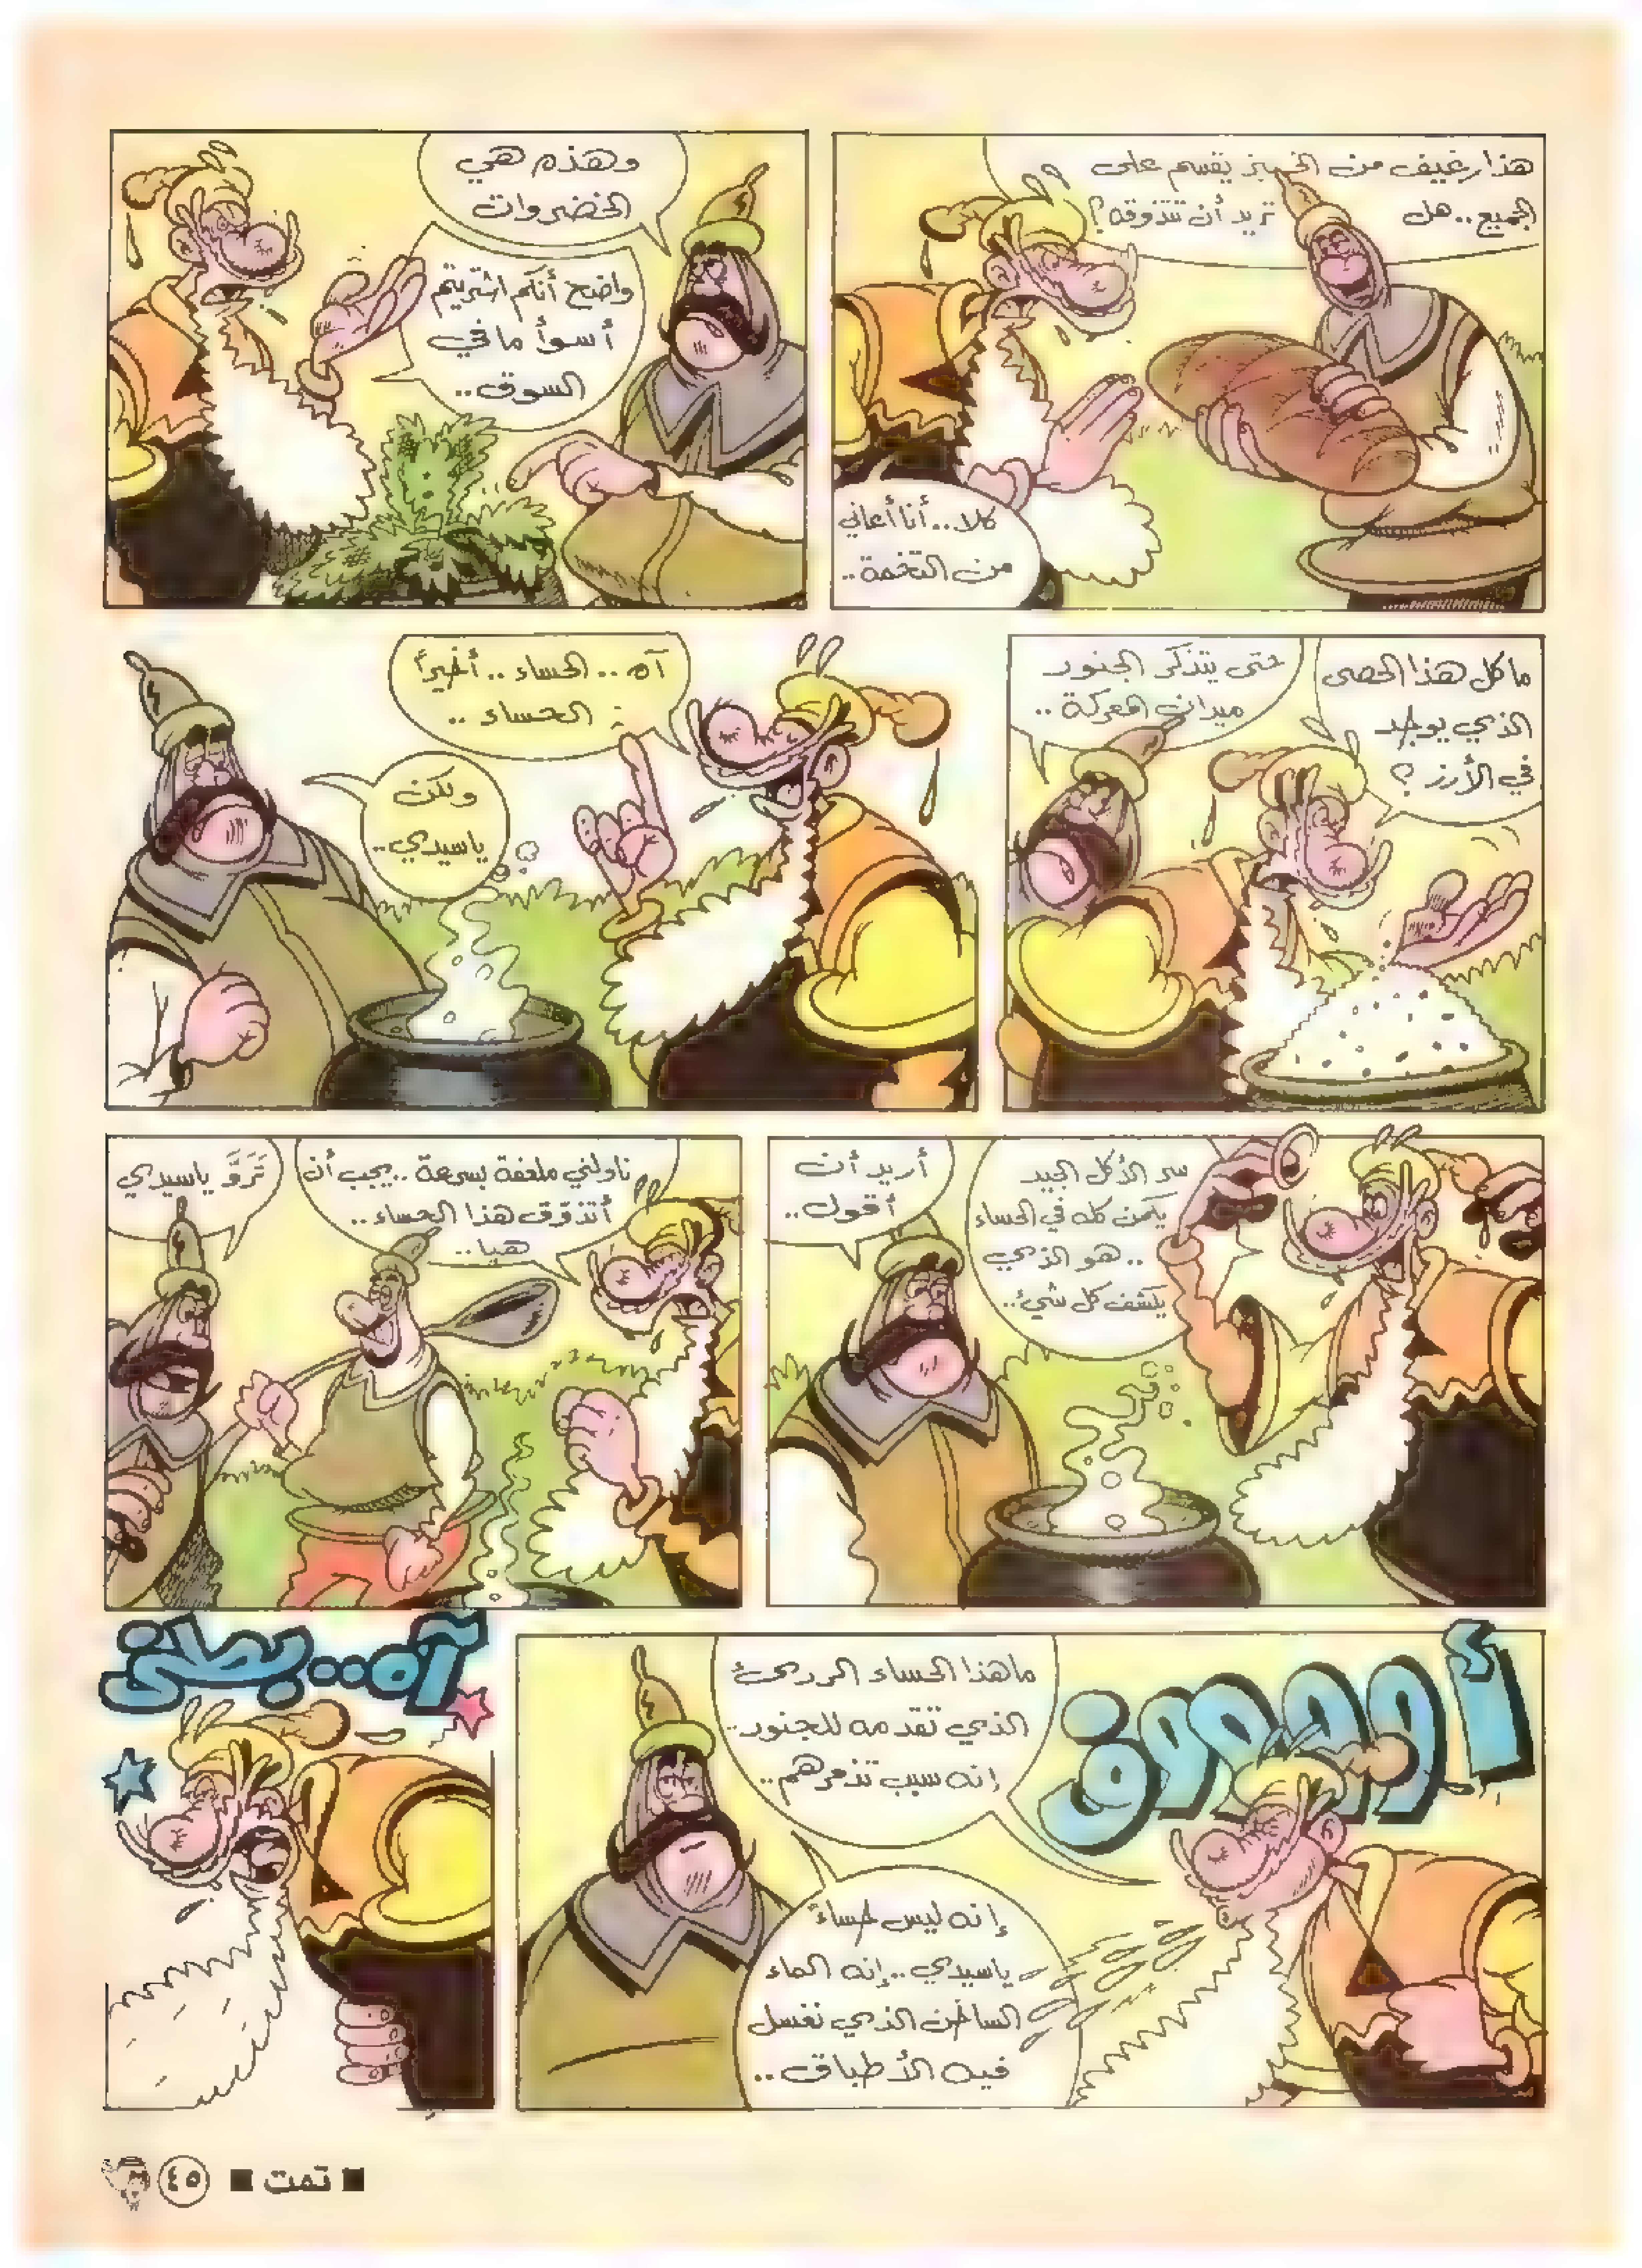 هذا رغيف من الخبز يقسم على
الجميع.. هل تريد أن تتذوقه؟
كلا... أنا أعاني
من التخمة..
وهذه هي
الخضروات
واضح أنكم اشتريتم
أسوأ ما في
السوق..
ما كل هذا الحصى
الذي يوجد
في الأرز ؟
حتى يتذكر الجنود
ميدان المعركة..
آه.. الحساء.. أخيراً
الحساء..
ولكن
ياسيدي..
سر الأكل الجيد
يكمن كله في الحساء
..هو الذي
يكشف كل شيء..
أريد أن
أقول..
ناولني ملعقة بسرعة.. يجب أن
أتذوق هذا الحساء..
هيا..
تَرَوَّ ياسيدي
أووووف
ماهذا الحساء الرديء
الذي تقدمه للجنود..
إنه سبب تذمرهم..
إنه ليس حساءً
ياسيدي.. إنه الماء
الساخن الذي نغسل
فيه الأطباق..
آه...بطني
■ تمت ■ ٤٥